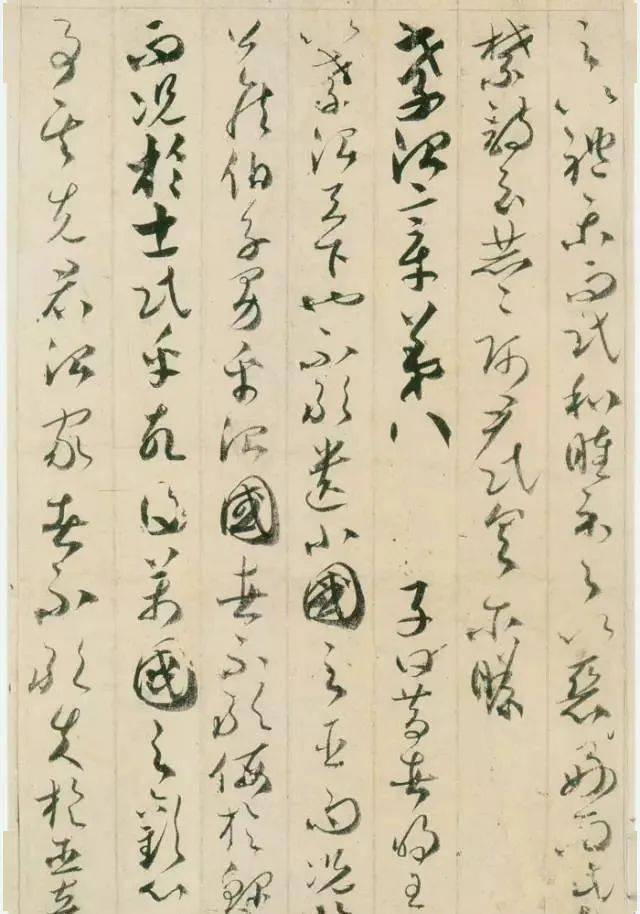 之以禮樂而民和睦示之以惡好而民
禁詩云赫〻師尹民具尔瞻
孝治章第八　子曰昔者明王
以孝治天下也不敢遺小國之臣而況於
公侯伯子男乎治國者不敢侮於鰥
而況於士民乎故得萬國之歡心
事其先君治家者不敢失於臣妾